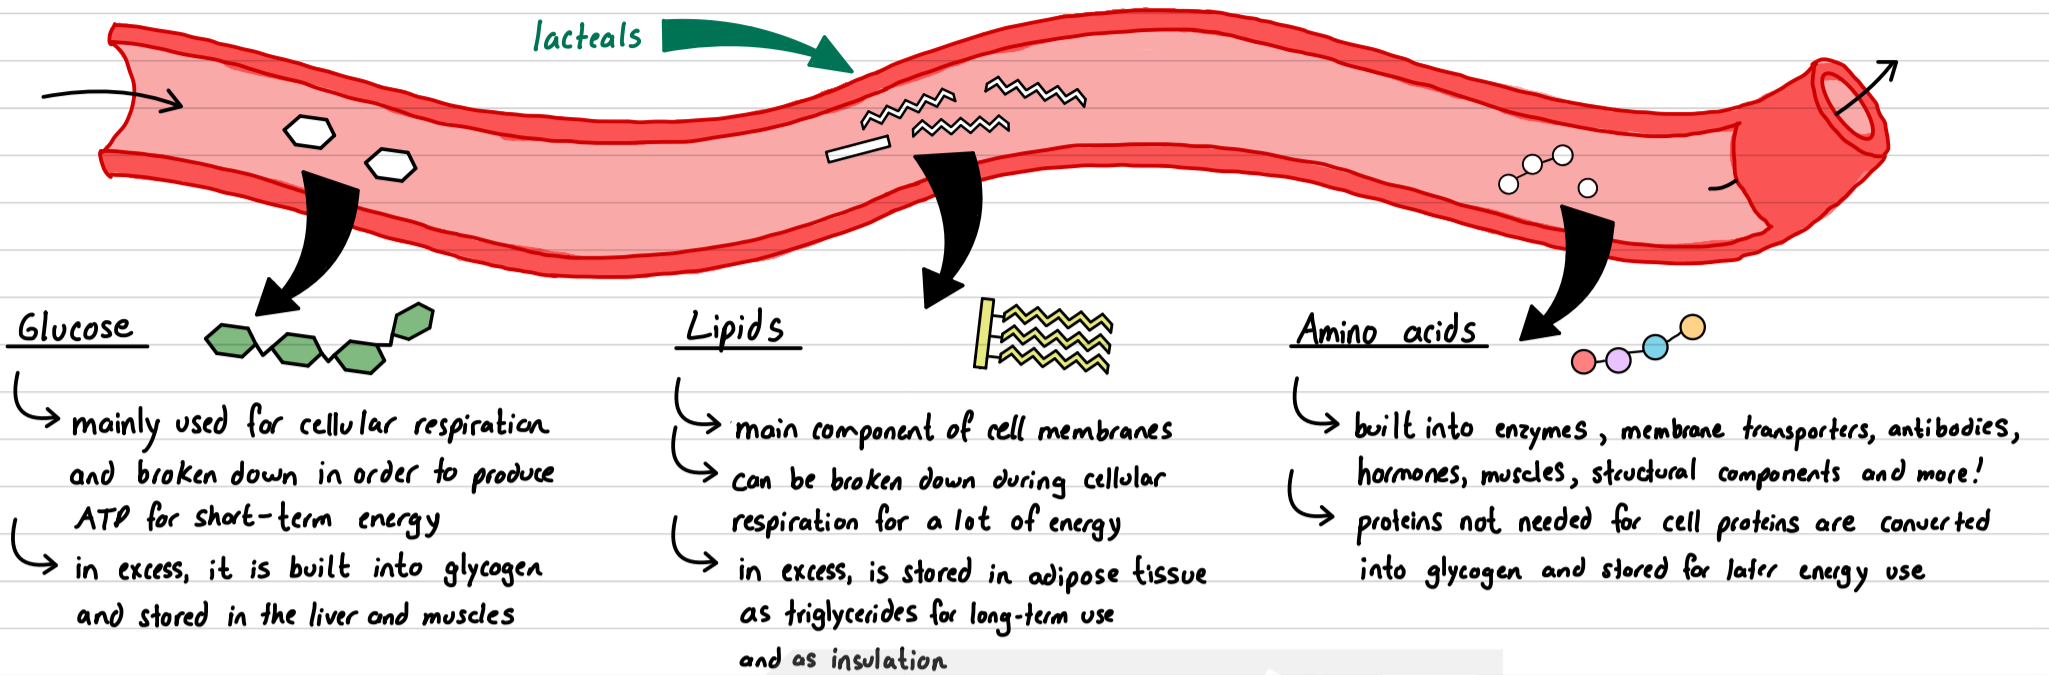 lacteals
Glucose
mainly used for cellular respiration
and broken down in order to produce
ATP for short-term energy
in excess, it is built into glycogen
and stored in the liver and muscles
Lipids
main component of cell membranes
can be broken down during cellular
respiration for a lot of energy
in excess, is stored in adipose tissue
as triglycerides for long-term use
and as insulation
Amino acids
built into enzymes, membrane transporters, antibodies,
hormones, muscles, structural components and more!
proteins not needed for cell proteins are converted
into glycogen and stored for later energy use